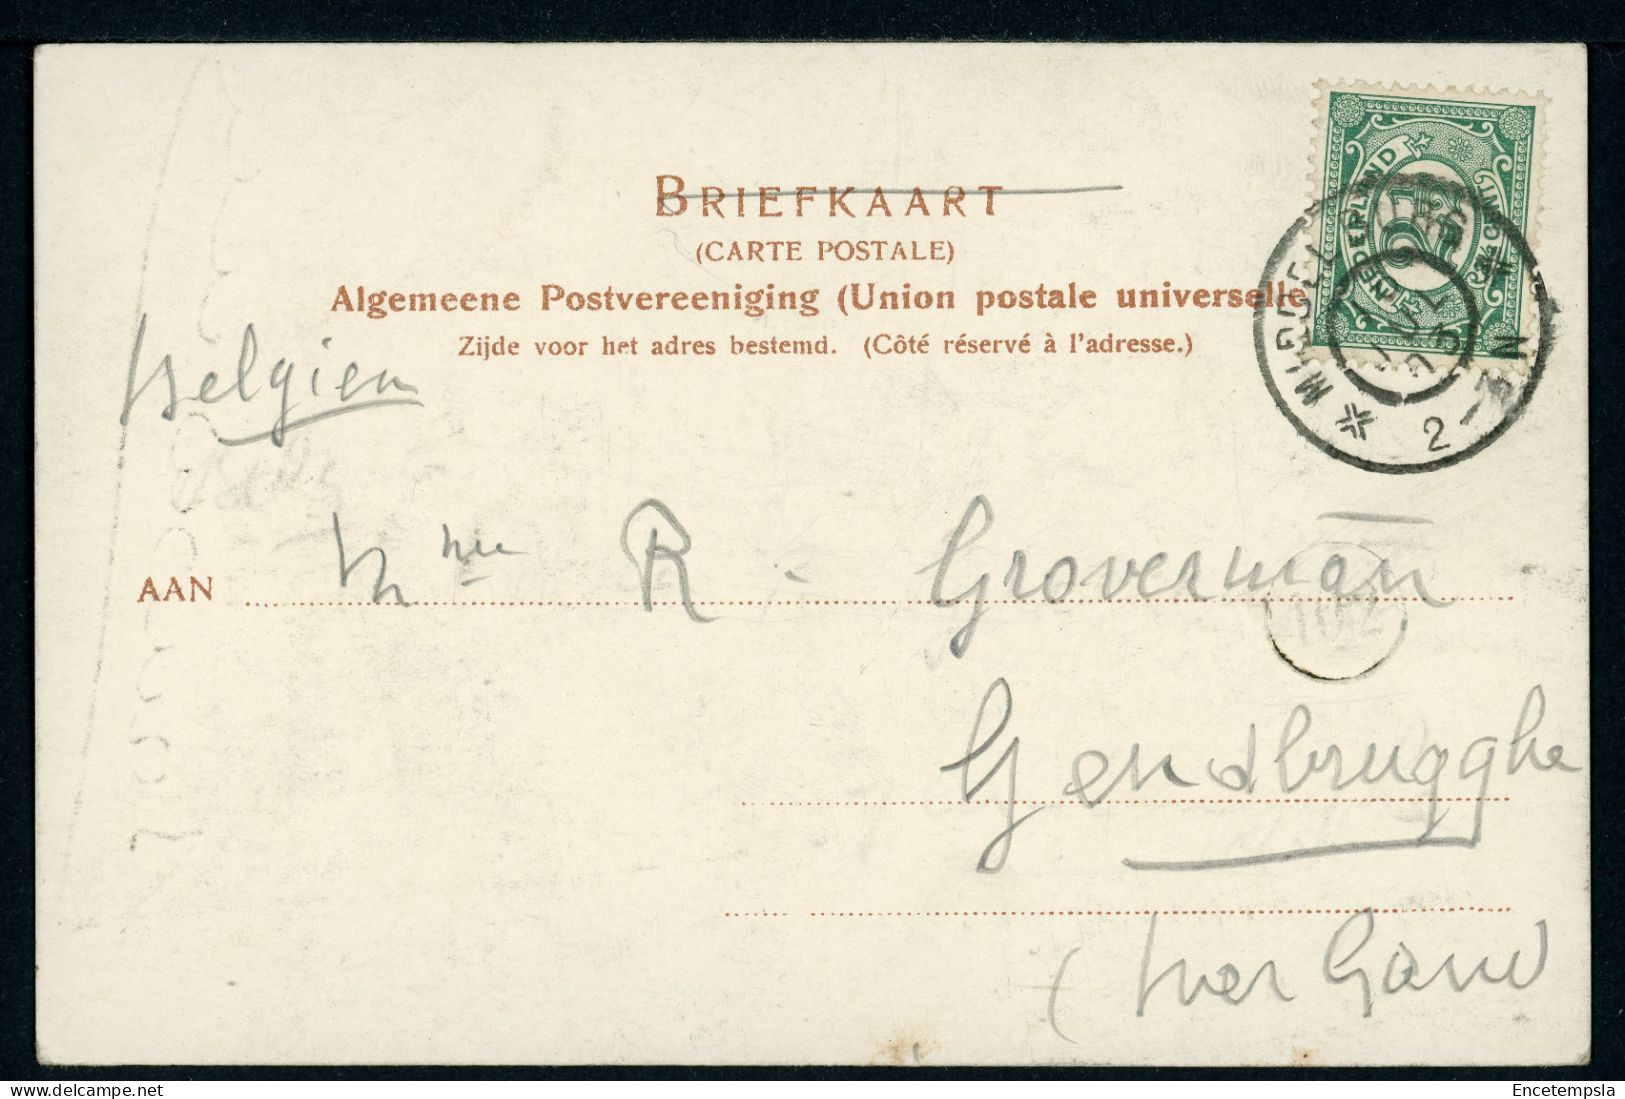 BRIEFKAART
(CARTE POSTALE)
Algemeene Postvereeniging (Union postale universelle
Zijde voor het adres bestemd. (Côté réservé à l'adresse.)
NEDERLAND
2½ CENT
MIDDELBURG
2-3N
Belgien
AAN Mme R. Groverman
Gendbrugghe
Gand
delcampe.net
Encetempsla